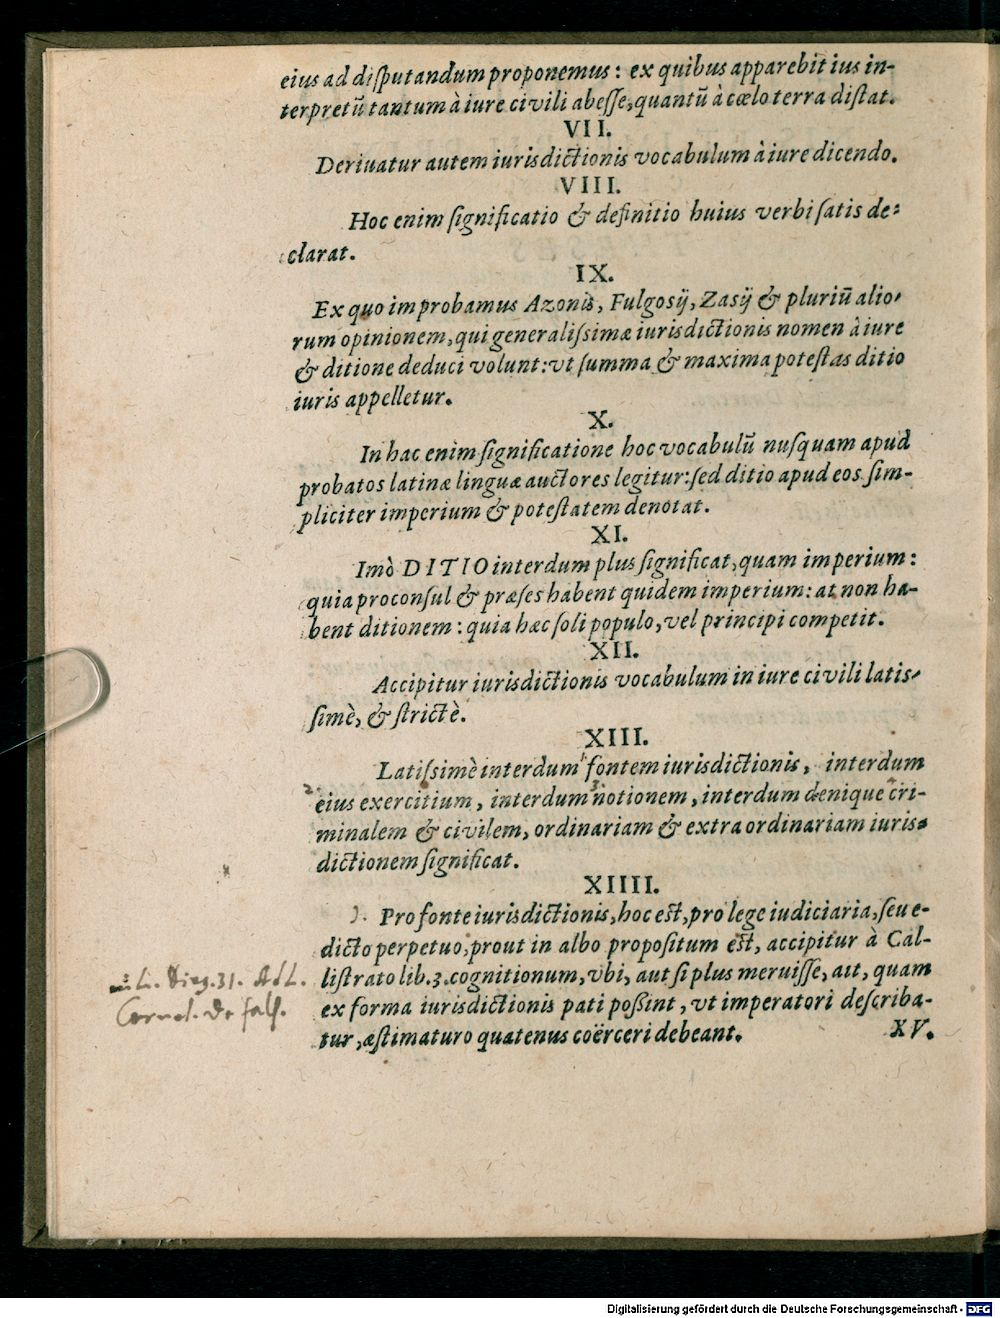 eius ad diſputandum proponemus: ex quibus apparebit ius in-
terpretū tantum à iure civili abeſſe, quantū à cœlo terra diſtat.
VII.
Deriuatur autem iurisdictionis vocabulum à iure dicendo.
VIII.
Hoc enim ſignificatio & definitio huius verbi ſatis de-
clarat.
IX.
Ex quo improbamus Azonis, Fulgosij, Zasij & pluriū alio-
rum opinionem, qui generaliſsimæ iurisdictionis nomen à iure
& ditione deduci volunt: vt ſumma & maxima poteſtas ditio
iuris appelletur.
X.
In hac enim ſignificatione hoc vocabulū nuſquam apud
probatos latinæ linguæ auctores legitur: ſed ditio apud eos ſim-
pliciter imperium & poteſtatem denotat.
XI.
Imò DITIO interdum plus ſignificat, quam imperium:
quia proconſul & præſes habent quidem imperium: at non ha-
bent ditionem: quia hæc ſoli populo, vel principi competit.
XII.
Accipitur iurisdictionis vocabulum in iure civili latis-
ſimè, & ſtrictè.
XIII.
Latiſsimè interdum fontem iurisdictionis, interdum
eius exercitium, interdum notionem, interdum denique cri-
minalem & civilem, ordinariam & extraordinariam iuris-
dictionem ſignificat.
XIIII.
1. Pro fonte iurisdictionis, hoc eſt, pro lege iudiciaria, ſeu e-
dicto perpetuo, prout in albo propoſitum eſt, accipitur à Cal-
liſtrato lib. 3. cognitionum, vbi, aut ſi plus meruiſſe, ait, quam
L. 31. Ad L.
Cornel. de falſ.
ex forma iurisdictionis pati poßint, vt imperatori deſcriba-
tur, æſtimaturo quatenus coërceri debeant.
XV.
Digitalisierung gefördert durch die Deutsche Forschungsgemeinschaft - DFG